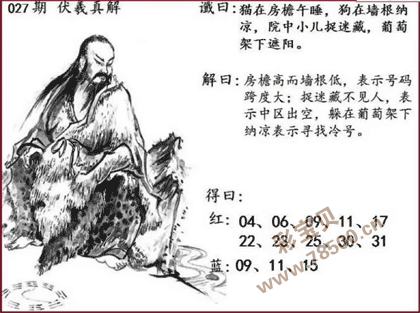 027期 伏羲真解
谶曰：猫在房檐午睡，狗在墙根纳
凉，院中小儿捉迷藏，葡萄
架下遮阳。
解曰：房檐高而墙根低，表示号码
跨度大；捉迷藏不见人，表
示中区出空，躲在葡萄架下
纳凉表示寻找冷号。
得曰：
红：04、06、09、11、17
22、23、25、30、31
蓝：09、11、15
彩宝贝
www.78500.cn